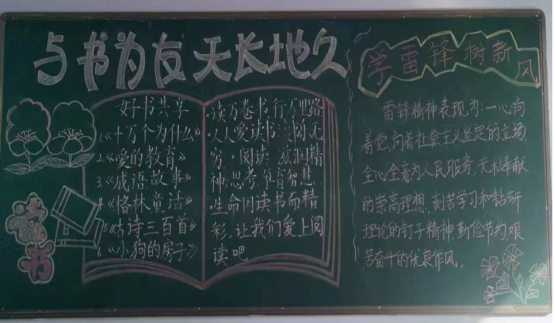 与书为友 天长地久
好书共享
1.《十万个为什么》
2.《爱的教育》
3.《成语故事》
4.《格林童话》
5.《诗三百首》
6.《小狗的房子》
读万卷书,行万里路
人人爱读书
穷,阅读 滋润精
神,思考孕育智慧
生命因读书而精
彩,让我们爱上阅
读吧
学雷锋树新风
雷锋精神表现为:一心向
着党,向着社会主义坚定的立场,
全心全意为人民服务,无私奉献
的崇高理想,刻苦学习和钻研
理论的钉子精神,勤俭节约艰
苦奋斗的优良作风。
书